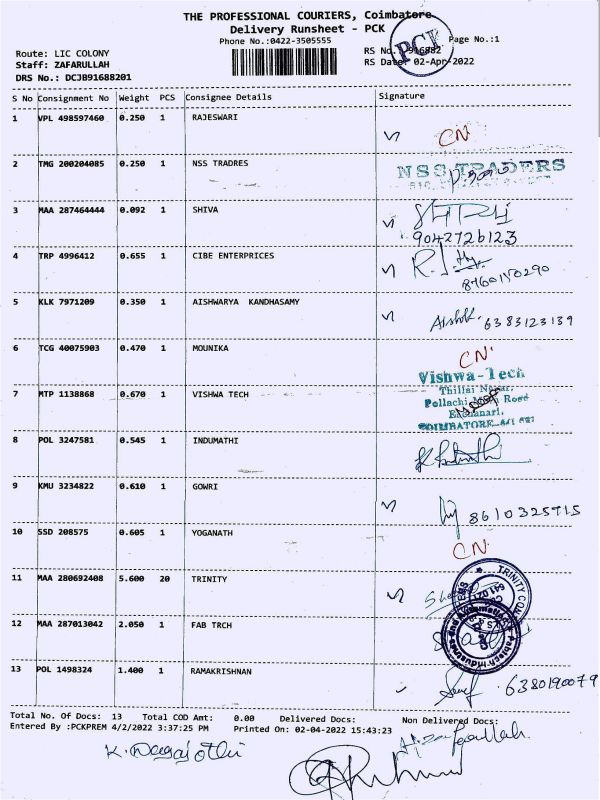 THE PROFESSIONAL COURIERS, Coimbatore
Delivery Runsheet - PCK
Phone No.:0422-3505555
Page No.:1
PCK
Route: LIC COLONY
Staff: ZAFARULLAH
DRS No.: DCJB91688201
RS No.: 916882
RS Date: 02-Apr-2022
S No Consignment No Weight PCS Consignee Details Signature
1 VPL 498597460 0.250 1 RAJESWARI
CN
2 TMG 200204085 0.250 1 NSS TRADRES
NSS TRADERS
3 MAA 287464444 0.092 1 SHIVA
9042726123
4 TRP 4996412 0.655 1 CIBE ENTERPRICES
8760150290
5 KLK 7971209 0.350 1 AISHWARYA KANDHASAMY
6383123139
6 TCG 40075903 0.470 1 MOUNIKA
CN
7 MTP 1138868 0.670 1 VISHWA TECH
Vishwa-Tech
Thillai Nagar,
Pollachi Main Road
Eachanari,
COIMBATORE
8 POL 3247581 0.545 1 INDUMATHI
9 KMU 3234822 0.610 1 GOWRI
8610325715
10 SSD 208575 0.605 1 YOGANATH
CN
11 MAA 280692408 5.600 20 TRINITY
TRINITY CON
12 MAA 287013042 2.050 1 FAB TRCH
13 POL 1498324 1.400 1 RAMAKRISHNAN
6380190079
Total No. Of Docs: 13 Total COD Amt: 0.00 Delivered Docs: Non Delivered Docs:
Entered By :PCKPREM 4/2/2022 3:37:25 PM Printed On: 02-04-2022 15:43:23
K. Nagajothi